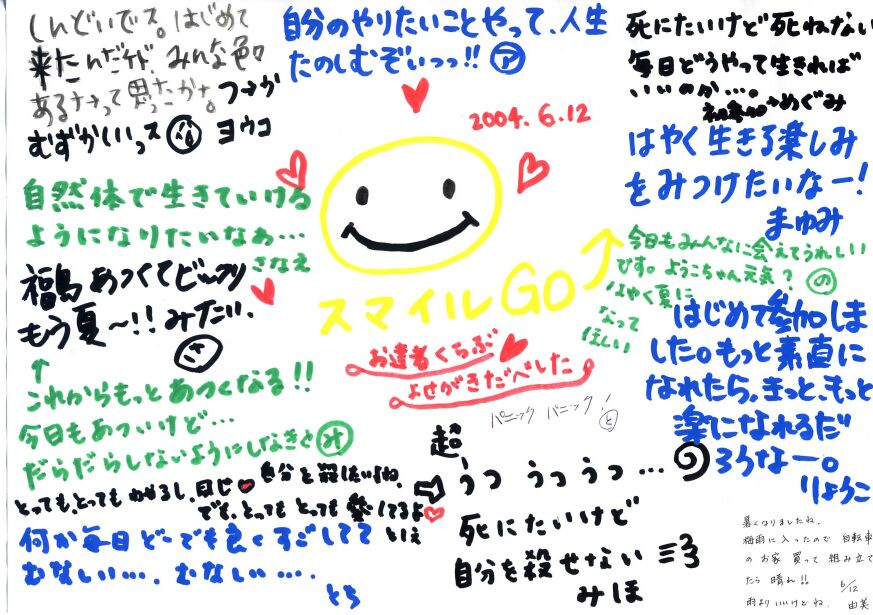 しんどいでス。はじめて
来たんだけど、みんな色々
あるナ→って思ったかな。フー→か
むずかしいっス ヨウコ
自分のやりたいことやって、人生
たのしむぞいっっ!! ア
2004.6.12
死にたいけど死ねない
毎日どうやって生きれば
いいのか…。
めぐみ
はやく生きる楽しみ
をみつけたいなー!
まゆみ
自然体で生きていける
ようになりたいなぁ…
さなえ
福島 あつくてビックリ
もう夏〜!! みたい、
スマイルGO
今日もみんなに会えてうれしい
です。ようこちゃん元気? の
はやく夏に
なって
ほしい
お達者くらぶ
よせがきだべした
はじめて参加しま
した。もっと素直に
なれたら、きっと、もっと
楽になれるだ
ろうなー。
りょうこ
↑
これからもっとあつくなる!!
今日もあついけど…
だらだらしないようにしなきと み
パニック パニック! と
超
うつ うつ うつ…
とっても、とっても わかるし、同じ
自分と
でも、とっても とっても 愛してるよ
といえ
死にたいけど
自分を殺せない
みほ
何か毎日どーでも良くすごしてて
むなしい…。むなしい…。
とも
暑くなりましたね。
梅雨に入ったので 自転車
のお家 買って 組み立て
たら 晴れ!!
雨よりいいけどね。
6/12
由美